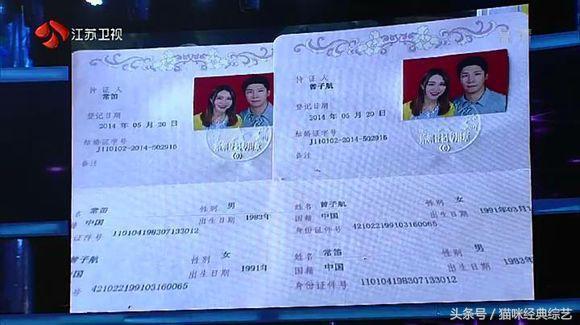 江苏卫视
持证人
常笛
登记日期
2014 年 05 月 20 日
结婚证字号
J110102-2014-502916
备注
姓名 常笛 性别 男
国籍 中国 出生日期 1983年
证件号 110104198307133012
曾子航 女
中国 出生日期 1991年
421022199103160065
持证人
曾子航
登记日期
2014 年 05 月 20 日
结婚证字号
J110102-2014-502916
备注
姓名 曾子航 性别 女
国籍 中国 出生日期 1991年03月
身份证件号 421022199103160065
姓名 常笛 性别 男
国籍 中国 出生日期 1983年
身份证件号 110104198307133012
头条号 / 猫咪经典综艺